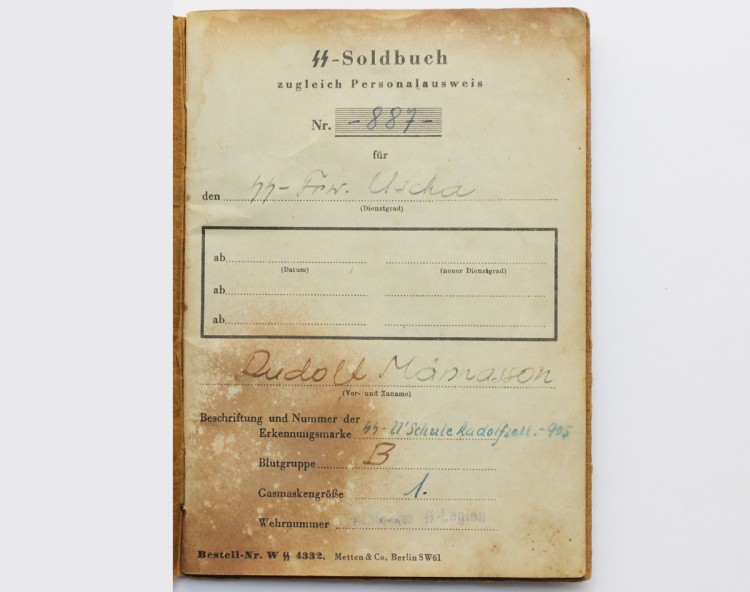 ᛋᛋ-Soldbuch
zugleich Personalausweis
Nr. -887-
für
den ᛋᛋ-Frw. Uscha
(Dienstgrad)
ab
(Datum) (neuer Dienstgrad)
ab
ab
Rudolf
(Vor- und Zuname)
Beschriftung und Nummer der
Erkennungsmarke ᛋᛋ-U'Schule Radolfzell.-905
Blutgruppe B
Gasmaskengröße 1.
Wehrnummer ᛋᛋ-Legion
Bestell-Nr. W ᛋᛋ 4332. Metten & Co., Berlin SW61